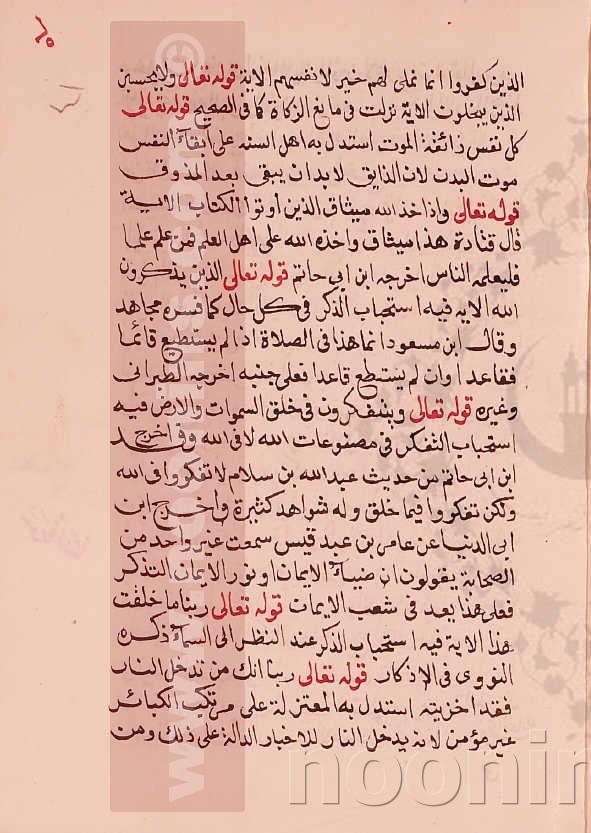 ٦٥
الذين كفروا انما نملى لهم خير لانفسهم الاية قوله تعالى ولا يحسبن
الذين يبخلون الاية نزلت فى مانع الزكاة كما فى الصحيح قوله تعالى
كل نفس ذائقة الموت استدل به اهل السنه على ابقآء النفس
موت البدن لان الذايق لا بد ان يبقى بعد المذوق
قوله تعالى واذ اخذ الله ميثاق الذين أوتوا الكتاب الاية
قال قتادة هذا ميثاق واخذه الله على اهل العلم فمن علم علما
فليعلمه الناس اخرجه ابن ابي حاتم قوله تعالى الذين يذكرون
الله الايه فيه استحباب الذكر فى كل حال كما فسره مجاهد
وقال ابن مسعود انما هذا فى الصلاة اذا لم يستطيع قائما
فقاعدا وان لم يستطع قاعدا فعلى جنبه اخرجه الطبرانى
وغيره قوله تعالى ويتفكرون فى خلق السموات والارض فيه
استحباب التفكر فى مصنوعات الله لا فى الله وقد اخرج
ابن ابى حاتم من حديث عبد الله بن سلام لا تفكروا فى الله
ولكن تفكروا فيما خلق وله شواهد كثيرة واخرج ابن
ابى الدنيا عن عامر بن عبد قيس سمعت غير واحد من
الصحابة يقولون ان ضيآء الايمان او نور الايمان التذكر
فعلى هذا يعد فى شعب الايمان قوله تعالى ربنا ما خلقت
هذا الاية فيه استحباب الذكر عند النظر الى السمآء ذكره
النووى فى الاذكار قوله تعالى ربنا انك من تدخل النار
فقد اخزيته استدل به المعتزلة على مرتكب الكبائر
غير مؤمن لانه يدخل النار للاخبار الدالة على ذلك ومن
noonin